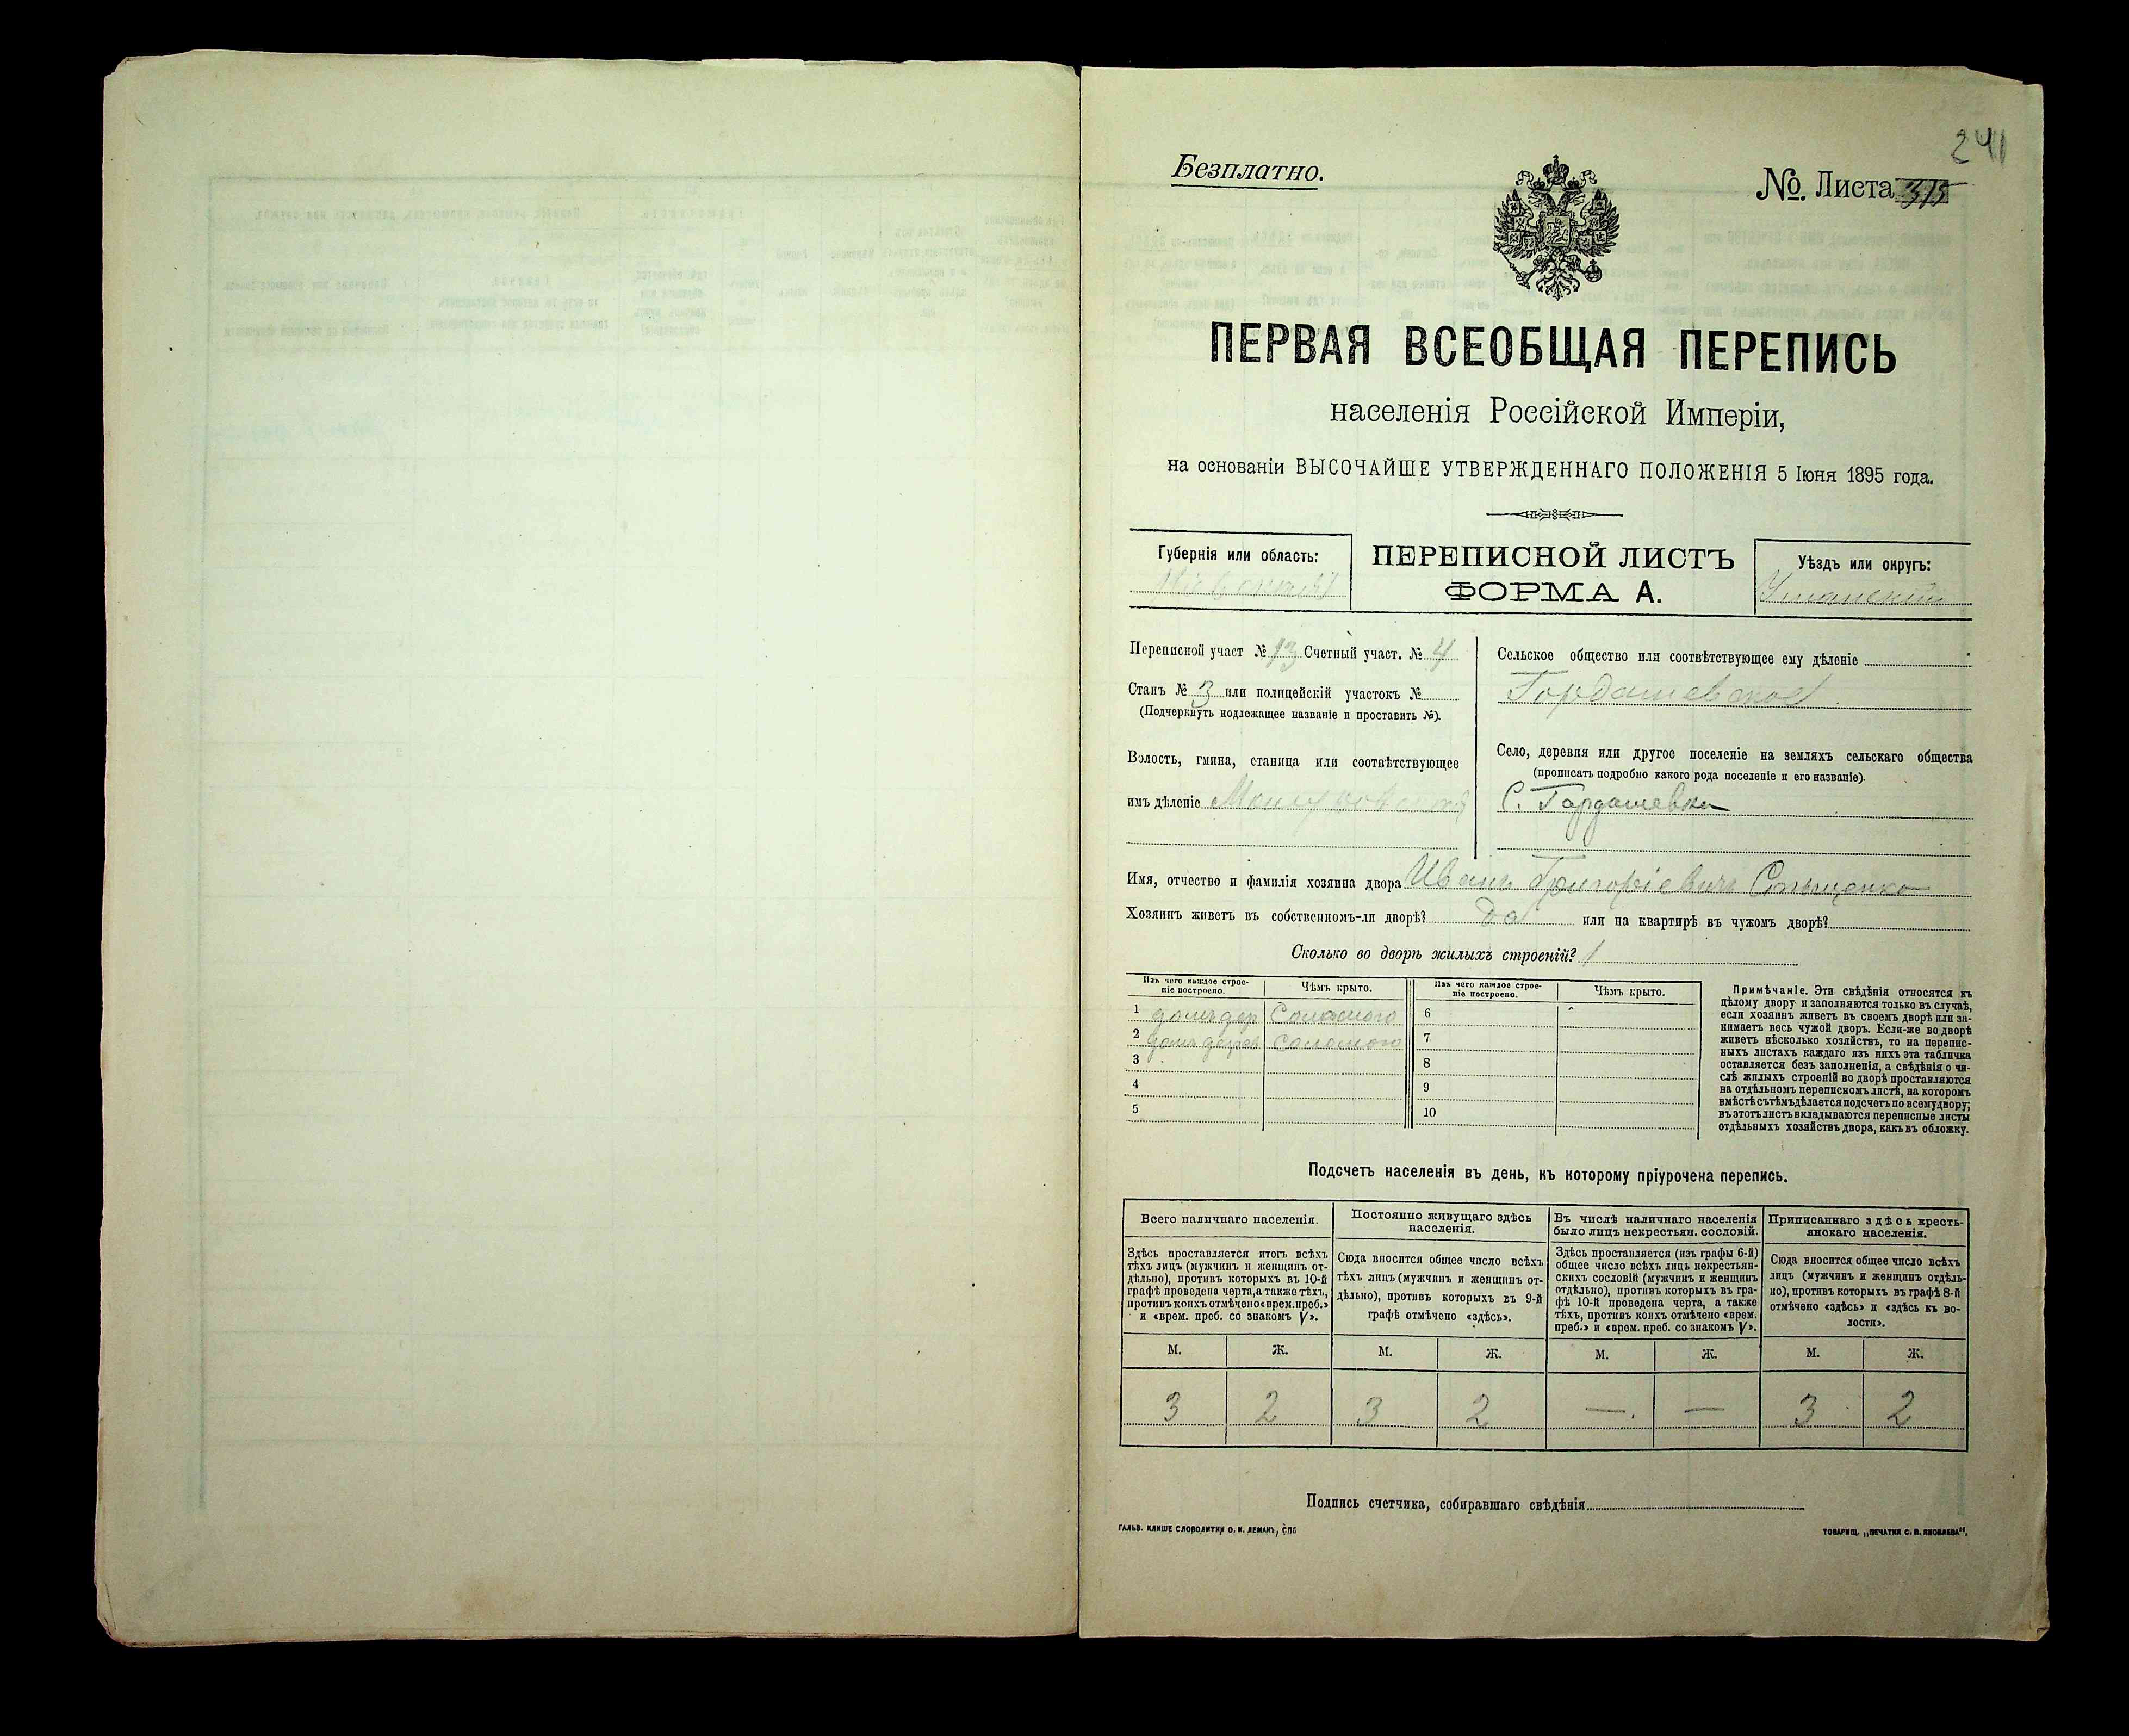 241
Безплатно.
№. Листа 315
ПЕРВАЯ ВСЕОБЩАЯ ПЕРЕПИСЬ
населенія Россійской Имперіи,
на основаніи ВЫСОЧАЙШЕ УТВЕРЖДЕННАГО ПОЛОЖЕНІЯ 5 Іюня 1895 года.
Губернія или область:
Кіевская
ПЕРЕПИСНОЙ ЛИСТЪ
ФОРМА А.
Уѣздъ или округъ:
Уманскій
Переписной участ № 13 Счетный участ. № 4
Станъ № 3 или полицейскій участокъ №
(Подчеркнуть подлежащее названіе и проставить №).
Волость, гмина, станица или соотвѣтствующее
имъ дѣленіе
Сельское общество или соотвѣтствующее ему дѣленіе
Гордашевское
Село, деревня или другое поселеніе на земляхъ сельскаго общества
(прописать подробно какого рода поселеніе и его названіе).
С. Гордашевка
Имя, отчество и фамилія хозяина двора Иванъ Григоріевичъ
Хозяинъ живетъ въ собственномъ-ли дворѣ? Да или на квартирѣ въ чужомъ дворѣ?
Сколько во дворѣ жилыхъ строеній? 1
Изъ чего каждое строе-
ніе построено.
Чѣмъ крыто.
Изъ чего каждое строе-
ніе построено.
Чѣмъ крыто.
1 домъ дер Соломою 6
2 домъ дерев соломою 7
3 8
4 9
5 10
Примѣчаніе. Эти свѣдѣнія относятся къ
цѣлому двору и заполняются только въ случаѣ,
если хозяинъ живетъ въ своемъ дворѣ или за-
нимаетъ весь чужой дворъ. Если-же во дворѣ
живетъ нѣсколько хозяйствъ, то на перепис-
ныхъ листахъ каждаго изъ нихъ эта табличка
оставляется безъ заполненія, а свѣдѣнія о чи-
слѣ жилыхъ строеній во дворѣ проставляются
на отдѣльномъ переписномъ листѣ, на которомъ
вмѣстѣ съ тѣмъ дѣлается подсчетъ по всему двору;
въ этотъ листъ вкладываются переписные листы
отдѣльныхъ хозяйствъ двора, какъ въ обложку.
Подсчетъ населенія въ день, къ которому пріурочена перепись.
Всего наличнаго населенія.
Здѣсь проставляется итогъ всѣхъ
тѣхъ лицъ (мужчинъ и женщинъ от-
дѣльно), противъ которыхъ въ 10-й
графѣ проведена черта, а также тѣхъ,
противъ коихъ отмѣчено «врем. преб.»
и «врем. преб. со знакомъ V».
Постоянно живущаго здѣсь
населенія.
Сюда вносится общее число всѣхъ
тѣхъ лицъ (мужчинъ и женщинъ от-
дѣльно), противъ которыхъ въ 9-й
графѣ отмѣчено «здѣсь».
Въ числѣ наличнаго населенія
было лицъ некрестьян. сословій.
Здѣсь проставляется (изъ графы 6-й)
общее число всѣхъ лицъ некрестьян-
скихъ сословій (мужчинъ и женщинъ
отдѣльно), противъ которыхъ въ гра-
фѣ 10-й проведена черта, а также
тѣхъ, противъ коихъ отмѣчено «врем.
преб.» и «врем. преб. со знакомъ V».
Приписаннаго здѣсь кресть-
янскаго населенія.
Сюда вносится общее число всѣхъ
лицъ (мужчинъ и женщинъ отдѣль-
но), противъ которыхъ въ графѣ 8-й
отмѣчено «здѣсь» и «здѣсь къ во-
лости».
М. Ж. М. Ж. М. Ж. М. Ж.
3 2 3 2 — — 3 2
Подпись счетчика, собиравшаго свѣдѣнія
ГАЛЬВ. КЛИШЕ СЛОВОЛИТНИ О. И. ЛЕМАНЪ, СПБ
ТОВАРИЩ. „ПЕЧАТНЯ С. П. ЯКОВЛЕВА".